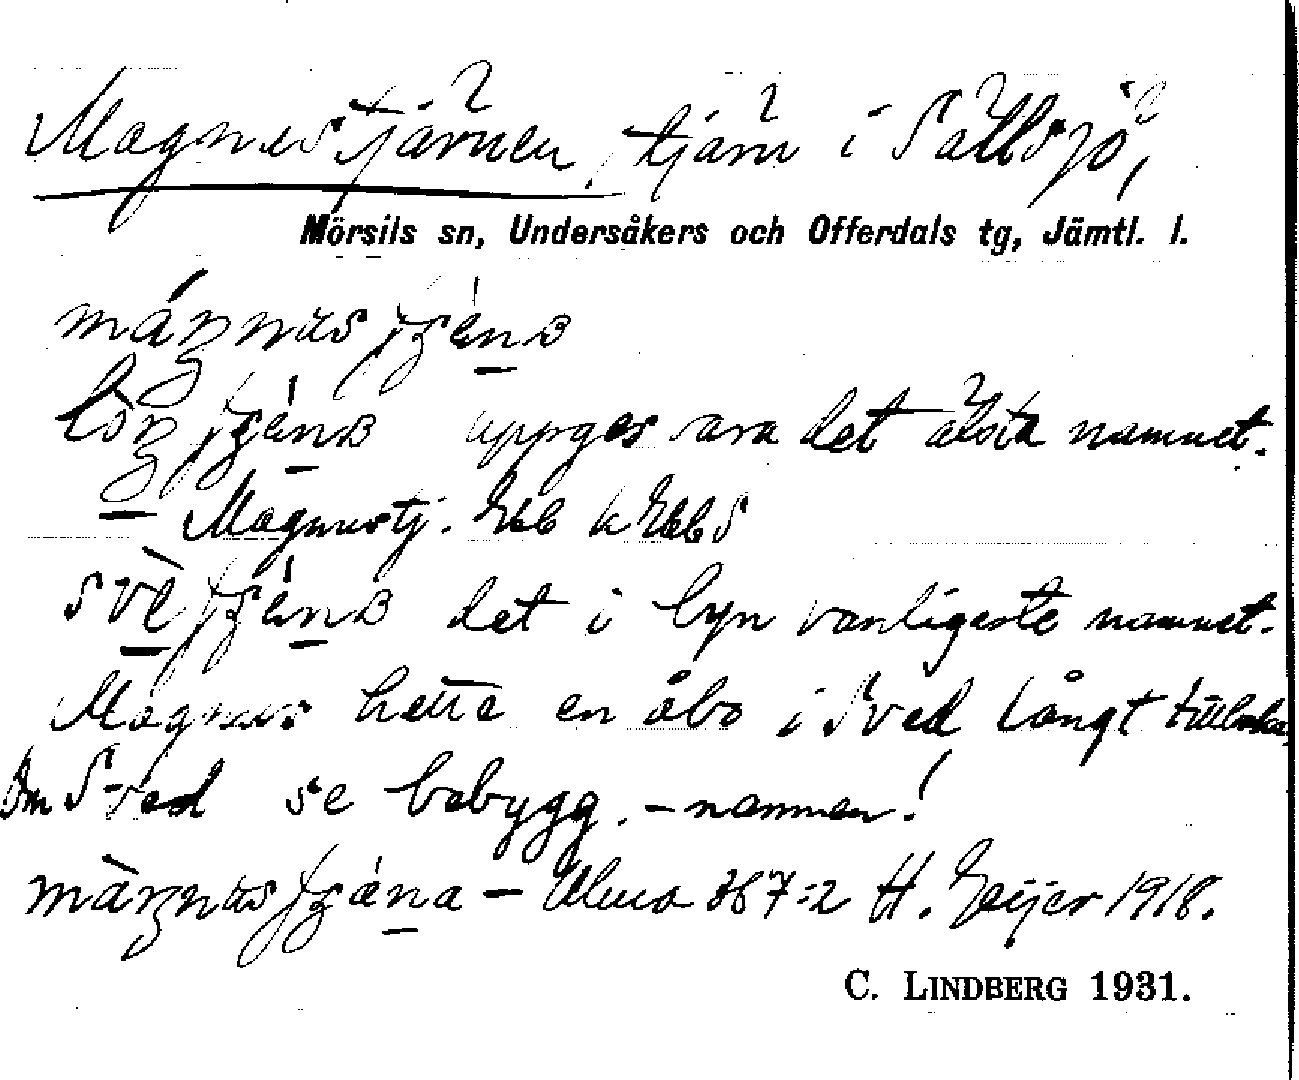 Magnustjärnen, tjärn i Sällsjö,
Mörsils sn, Undersåkers och Offerdals tg, Jämtl. l.
uppges vara det älsta namnet.
Magnustj. Ekb k EkbS
det i byn vanligaste namnet.
Magnus hette en åbo i Sved långt tillbaka
Om Sved se bebygg.-namnen!
— Ulma 367:2 H. Geijer 1918.
C. LINDBERG 1931.